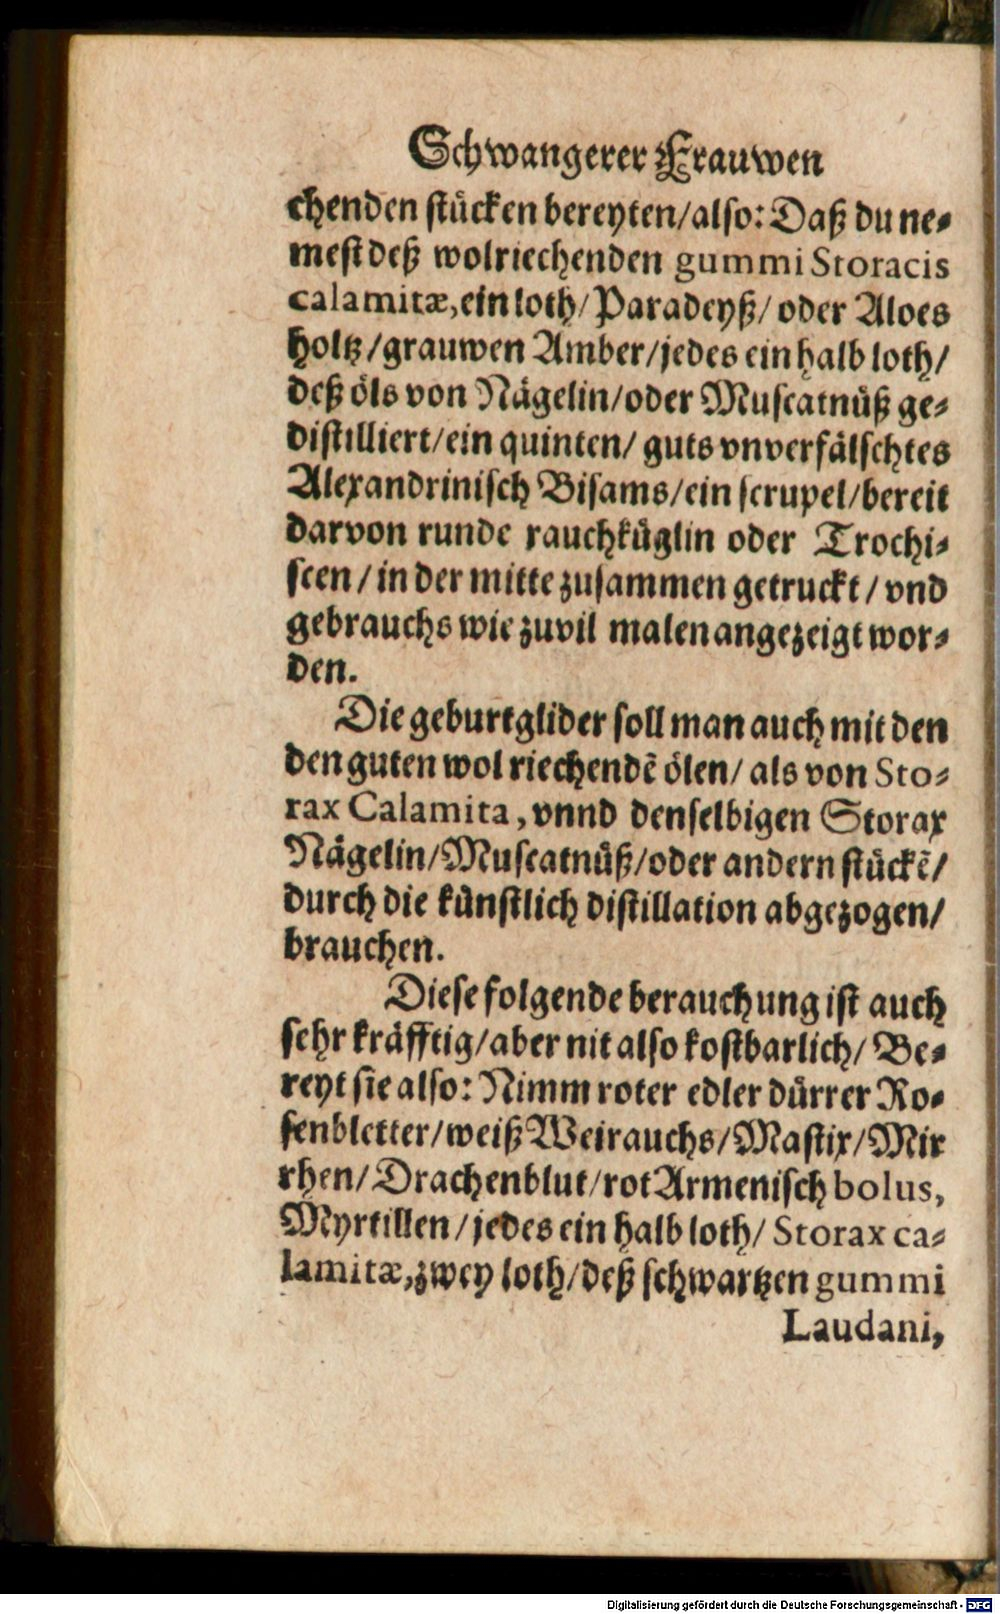 Schwangerer Frauwen
chenden stücken bereyten/also: Daß du ne⸗
mest deß wolriechenden gummi Storacis
calamitæ, ein loth/ Paradeyß/ oder Aloes
holtz/grauwen Amber/jedes ein halb loth/
deß öls von Nägelin/oder Muscatnüß ge⸗
distilliert/ein quinten/ guts vnverfälschtes
Alexandrinisch Bisams/ein scrupel/bereit
darvon runde rauchküglin oder Trochi⸗
scen/in der mitte zusammen getruckt/vnd
gebrauchs wie zuvil malen angezeigt wor⸗
den.
Die geburtglider soll man auch mit den
den guten wol riechendẽ ölen/ als von Sto⸗
rax Calamita, vnnd denselbigen Storax
Nägelin/Muscatnüß/oder andern stückẽ/
durch die künstlich distillation abgezogen/
brauchen.
Diese folgende berauchung ist auch
sehr kräfftig/aber nit also kostbarlich/ Be⸗
reyt sie also: Nimm roter edler dürrer Ro⸗
senbletter/weiß Weirauchs/Mastix/Mir
rhen/Drachenblut/rot Armenisch bolus,
Myrtillen/jedes ein halb loth/ Storax ca⸗
lamitæ, zwey loth/deß schwartzen gummi
Laudani,
Digitalisierung gefördert durch die Deutsche Forschungsgemeinschaft - DFG